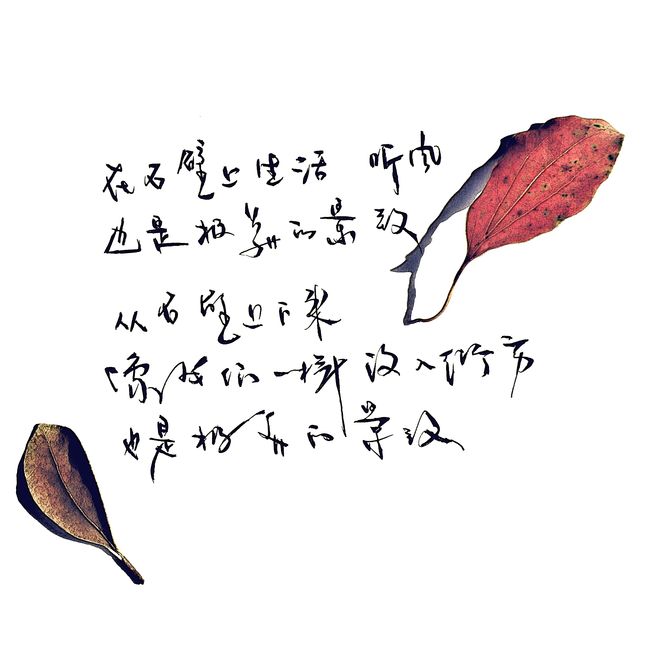 在石壁上生活 听风
也是极美的景致
从石壁上下来
像们一样 没入街市
也是极美的景致